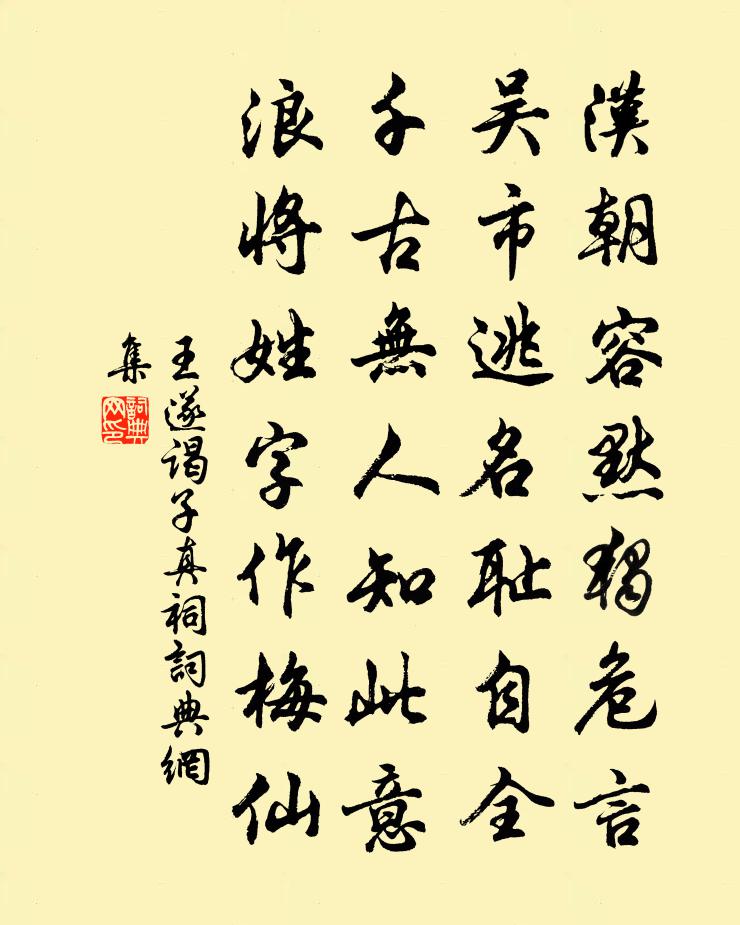 漢朝容默獨危言
吳市逃名耻自全
千古無人知此意
浪將姓字作梅仙
王遂謁子真祠詞典網
集
詞典
网印